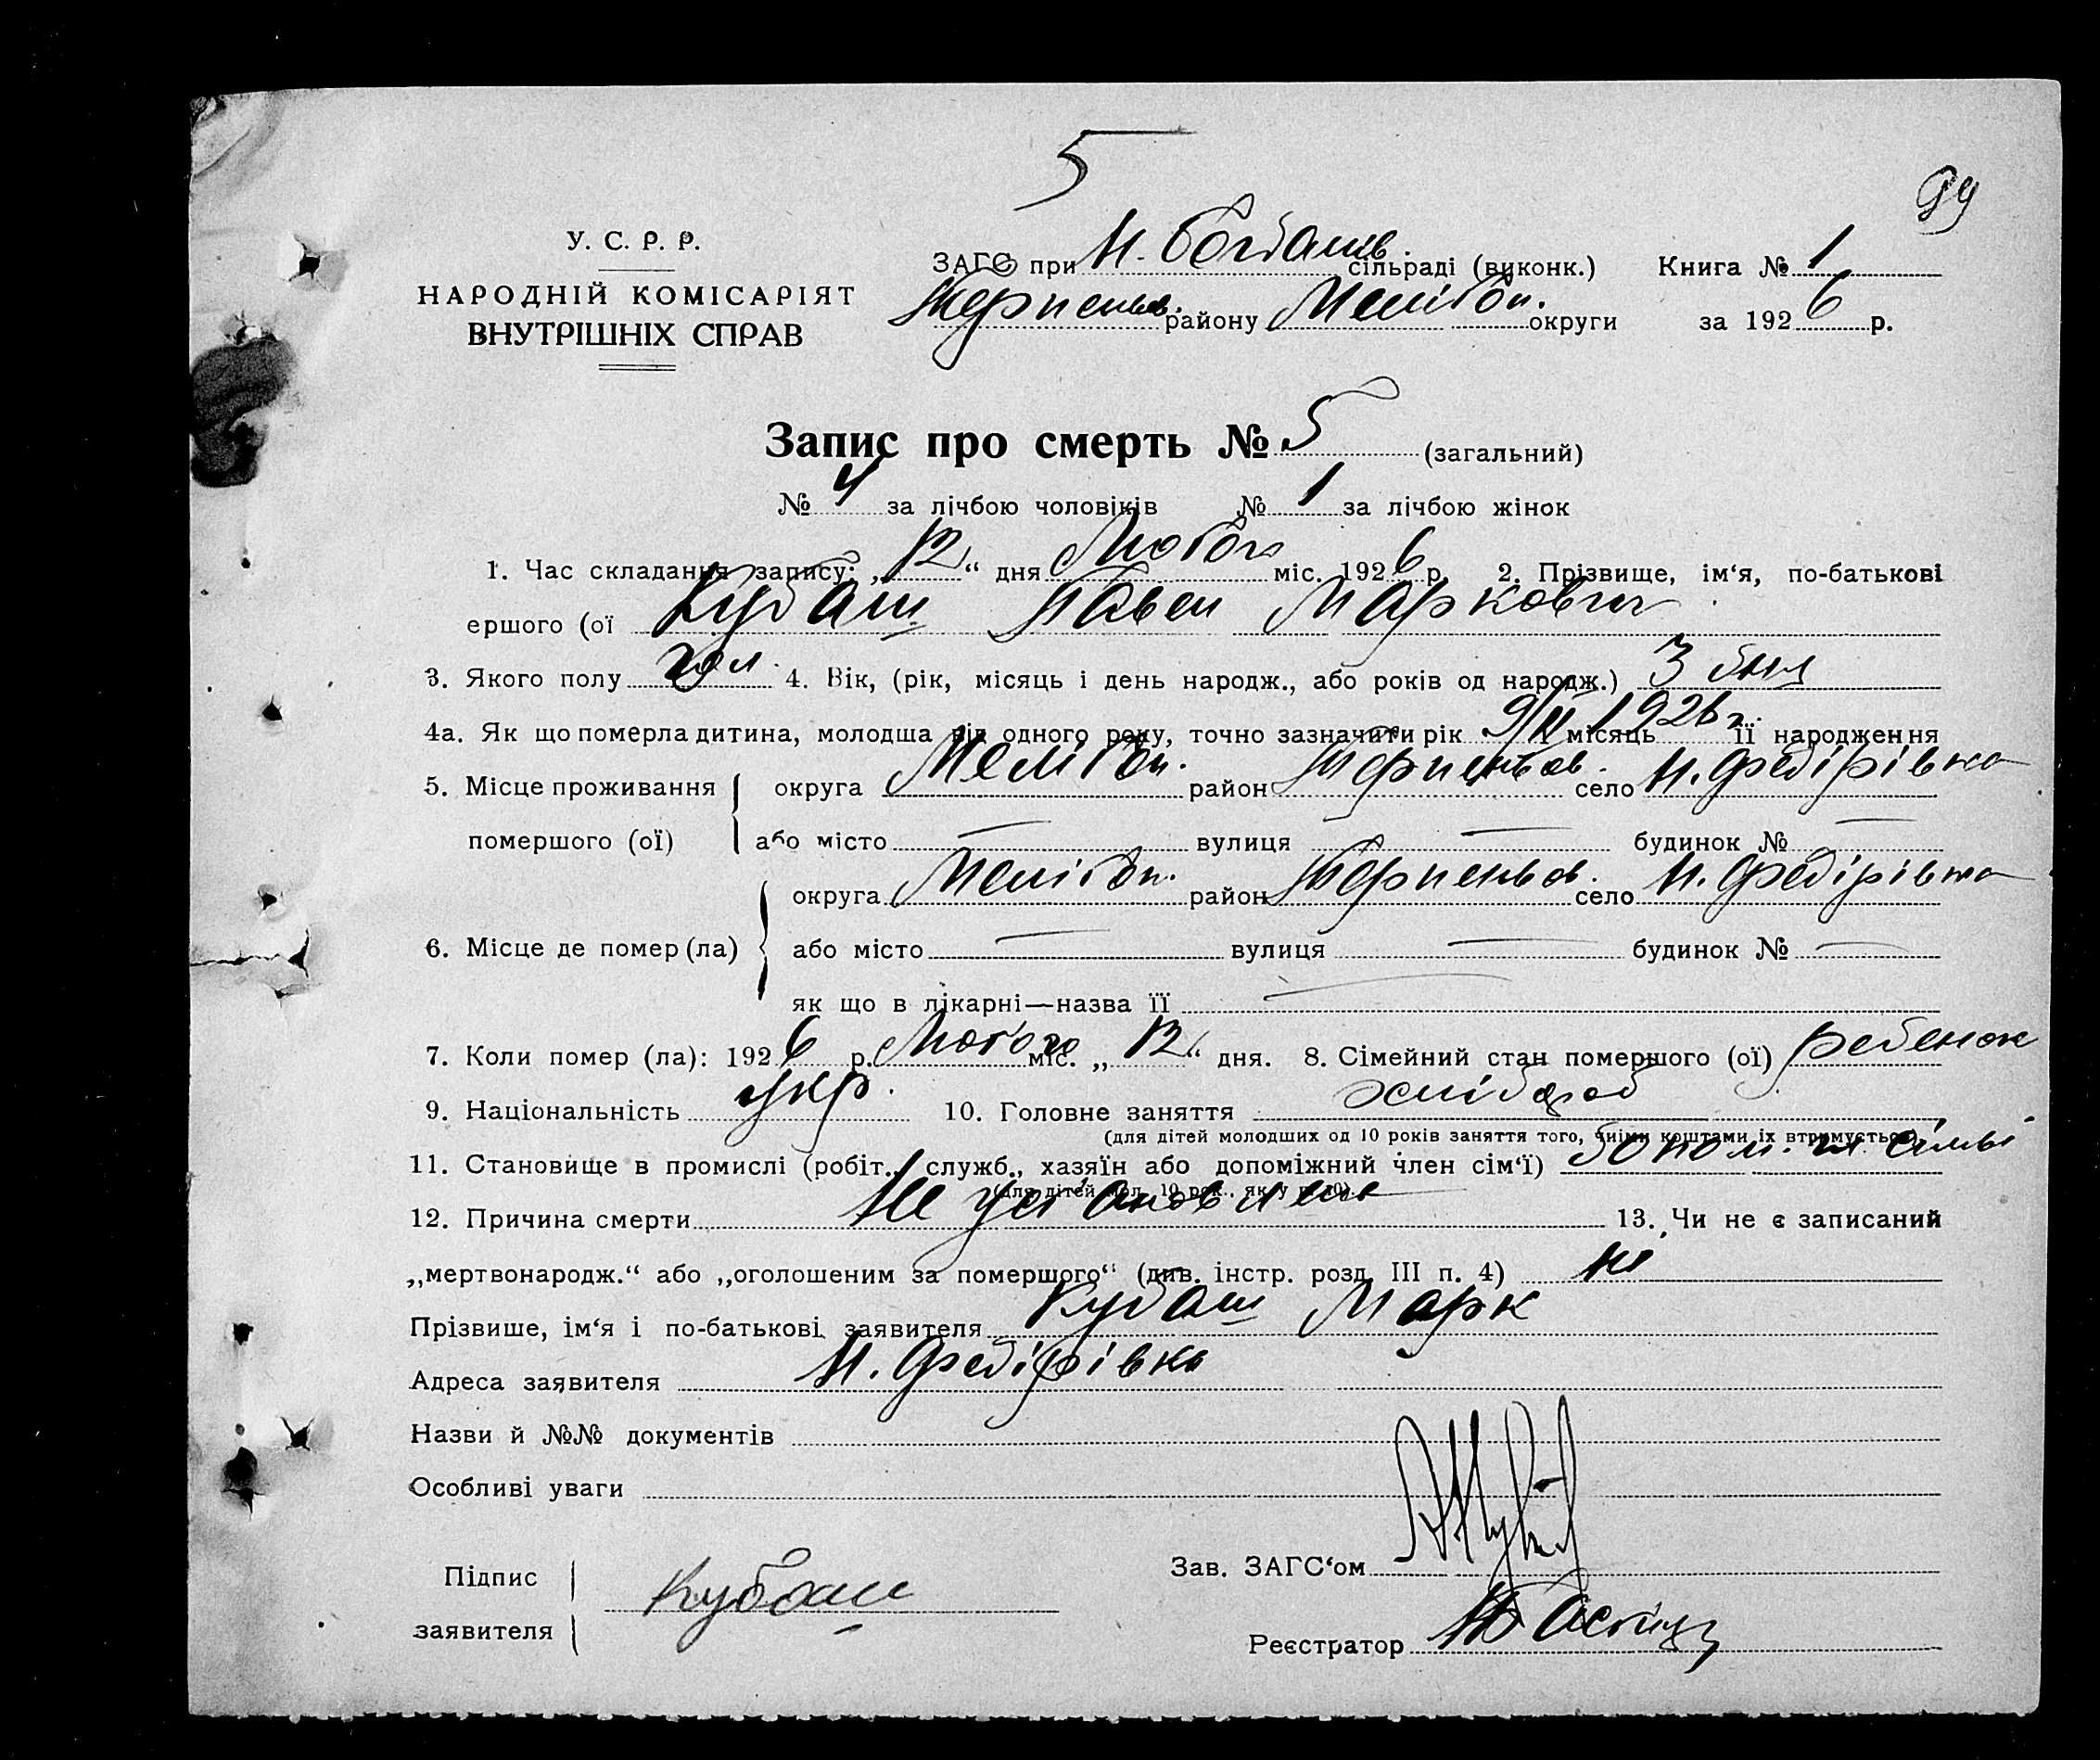 5
99
У. С. Р. Р.
НАРОДНІЙ КОМІСАРІЯТ
ВНУТРІШНІХ СПРАВ
ЗАГС при Н. Богданів. сільраді (виконк.) Книга № 1
Терпеньєв. району Меліtоп. округи за 1926 р.
Запис про смерть № 5 (загальний)
№ 4 за лічбою чоловіків № 1 за лічбою жінок
1. Час складання запису: „12“ дня Лютого міс. 1926 р. 2. Прізвище, ім‘я, по-батькові
ершого (ої Кубаш Павел Маркович
3. Якого полу чол. 4. Вік, (рік, місяць і день народж., або років од народж.) 3 дня
4а. Як що померла дитина, молодша від одного року, точно зазначити рік 9/II 1926 г. місяць її народження
5. Місце проживання округа Мелітоп. район Терпеньєв. село Н. Федірівка
помершого (ої) або місто — вулиця — будинок № —
округа Мелітоп. район Терпеньєв. село Н. Федірівка
6. Місце де помер (ла) або місто — вулиця — будинок № —
як що в лікарні—назва її —
7. Коли помер (ла): 1926 р. Лютого міс. „12“ дня. 8. Сімейний стан помершого (ої) ребенок
9. Національність укр. 10. Головне заняття хлібороб
(для дітей молодших од 10 років заняття того, чиїми коштами їх втримується)
11. Становище в промислі (робіт., служб., хазяїн або допоміжний член сім‘ї) допом. чл. сімьї
(для дітей мол. 10 рок., як у п. 10)
12. Причина смерти Не установлено 13. Чи не є записаний
„мертвонародж.“ або „оголошеним за помершого“ (див. інстр. розд. III п. 4) ні
Прізвише, ім‘я і по-батькові заявителя Кубаш Марк
Адреса заявителя Н. Федірівка
Назви й №№ документів
Особливі уваги
Підпис
заявителя Кубаш
Зав. ЗАГС‘ом
Реєстратор